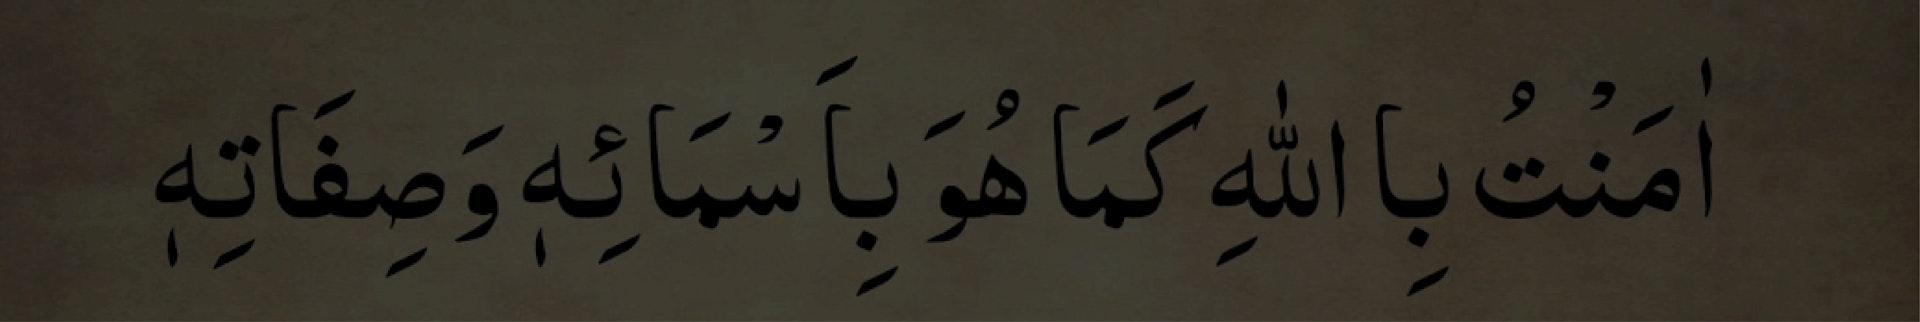 اٰمَنْتُ بِا اللّٰهِ كَمَا هُوَ بِاَسْمَائِهٖ وَصِفَاتِهٖ